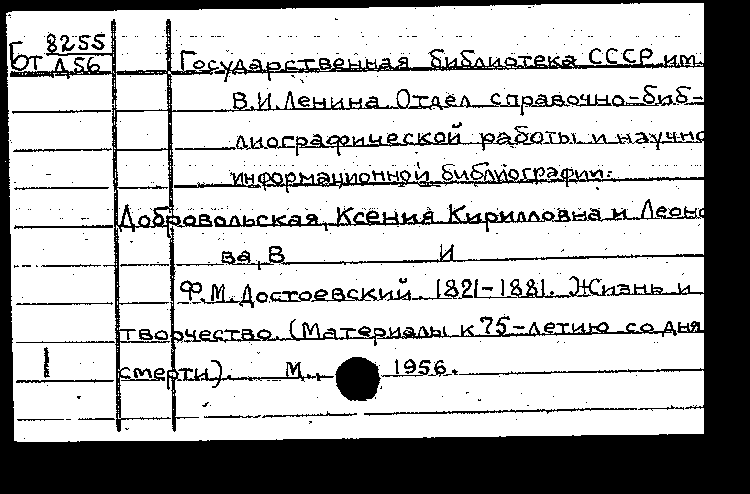 Бт 8255
Д56
Государственная библиотека СССР им.
В.И.Ленина. Отдел справочно-биб-
лиографической работы и научно
информационной библиографии.
Добровольская, Ксения Кирилловна и Леоно
ва, В И
Ф.М.Достоевский. 1821-1881. Жизнь и
творчество. (Материалы к 75-летию со дня
смерти). М., 1956.
1